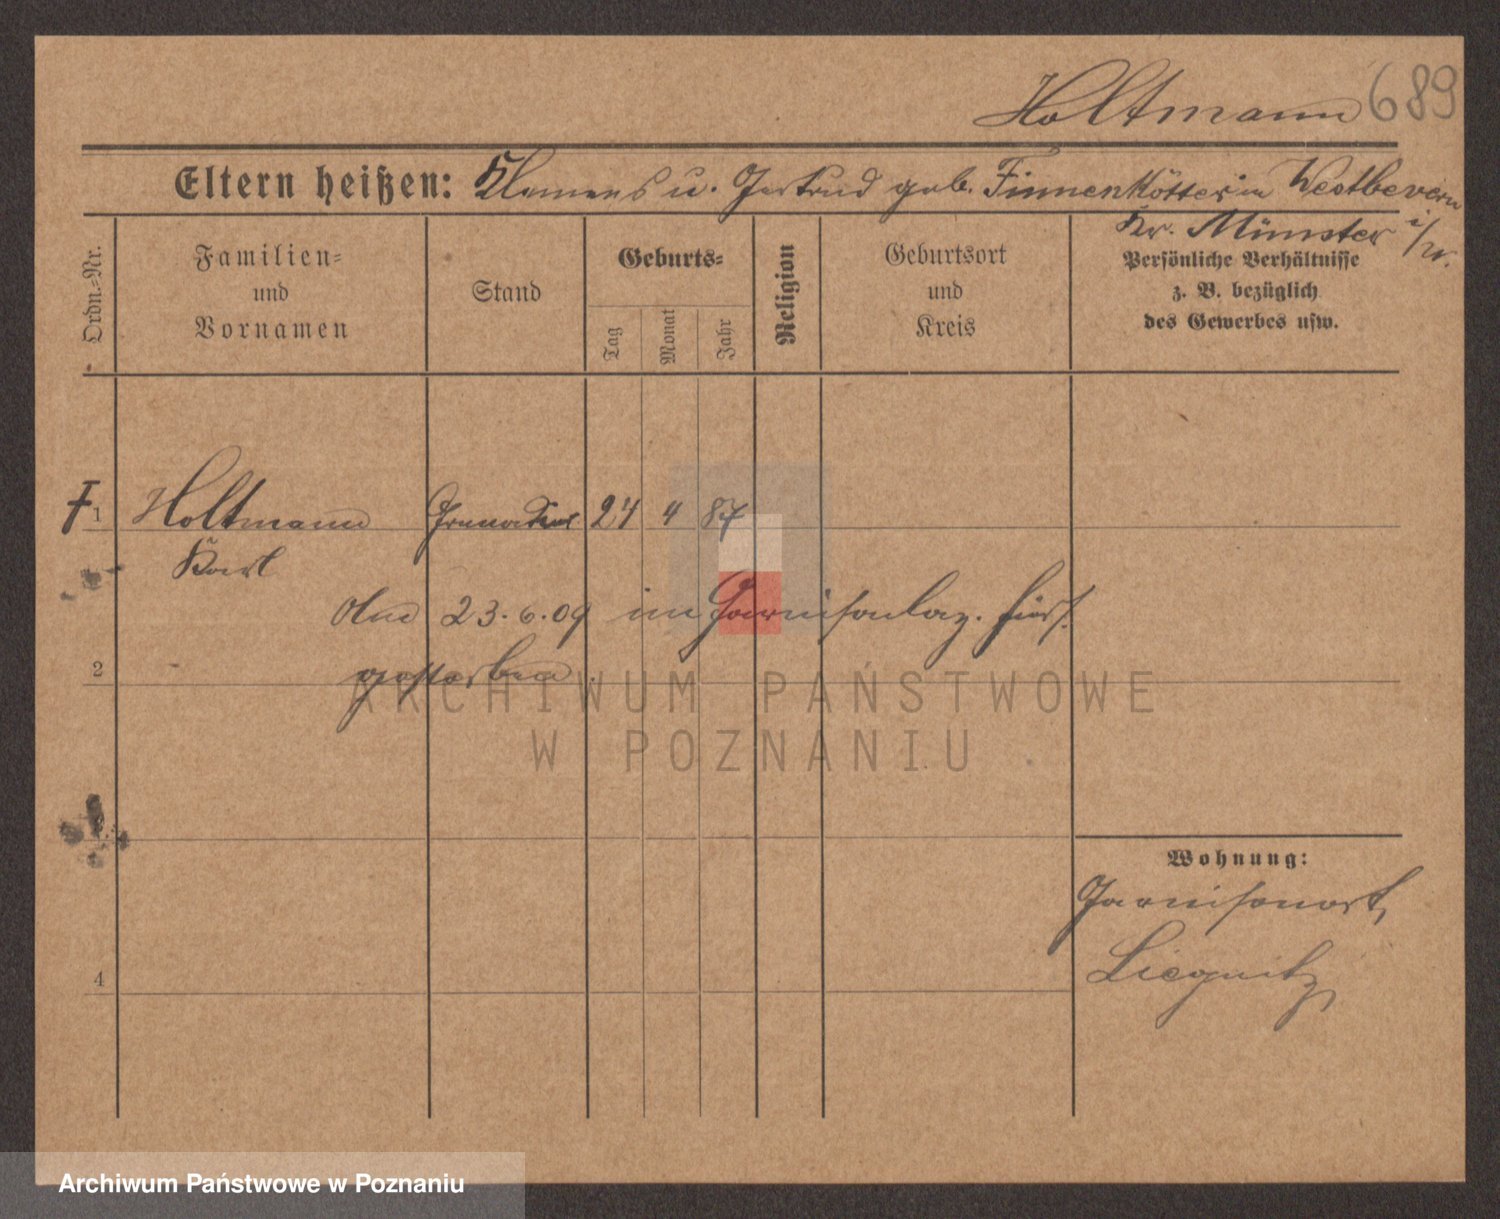 Holtmann 689
Eltern heißen: Klemens u. Gertrud geb. Finnenkötter in Westbevern
Kr. Münster i/W.
Ordn.-Nr.
Familien-
und
Vornamen
Stand
Geburts-
Tag
Monat
Jahr
Religion
Geburtsort
und
Kreis
Persönliche Verhältnisse
z. B. bezüglich
des Gewerbes usw.
F 1 Holtmann Grenadier 24 4 87
Karl
Am 23.6.09 im Garnisonlaz. hiers.
gestorben.
2
4
Wohnung:
Garnisonort,
Liegnitz,
ARCHIWUM PAŃSTWOWE
W POZNANIU
Archiwum Państwowe w Poznaniu